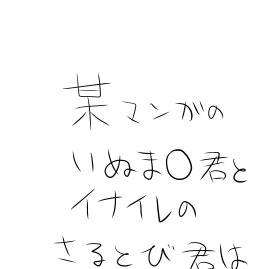 某マンガの
いぬま○君と
イナイレの
さるとび君は